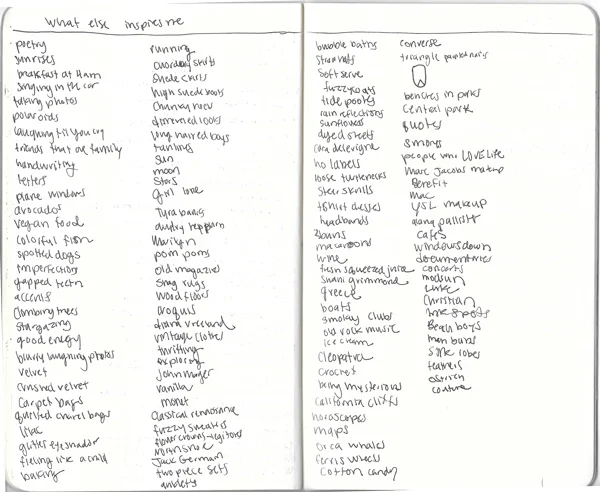 what else inspires me
poetry
sunrises
breakfast at 11am
singing in the car
taking photos
polaroids
laughing til you cry
friends that are family
handwriting
letters
plane windows
avocados
vegan food
colorful fish
spotted dogs
imperfections
gapped teeth
accents
climbing trees
stargazing
good energy
blurry laughing photos
velvet
crushed velvet
carpet bags
quilted chanel bags
lilac
glitter eyeshadow
feeling like a child
baking
running
corduroy skirts
suede skirts
high suede boots
chunky heels
long haired boys
tanlines
sun
moon
stars
girl love
Tyra banks
audry hepburn
Marilyn
pom poms
old magazines
shag rugs
wood floors
croquis
diana vreeland
vintage clothes
thrifting
exploring
John mayer
vanilla
monet
classical renaissance
fuzzy sweaters
flower crowns
Jack Germain
two piece sets
anxiety
bubble baths
straw hats
soft serve
fuzzy coats
tide pools
rain reflections
sunflowers
dyed streets
cara delevigne
no labels
loose turtlenecks
steer skulls
tshirt dresses
headbands
buns
macaroons
wine
fresh squeezed juice
shani grimmond
greece
boats
smokey clubs
old rock music
ice cream
cleopatra
crochet
being mysterious
california cliffs
horoscopes
maps
orca whales
ferris wheels
cotton candy
converse
triangle painted nails
benches in parks
central park
quotes
smores
people who LOVE life
Marc Jacobs makeup
Benefit
mac
YSL makeup
alana pallister
cafes
windows down
documentaries
concerts
Christian
Beach boys
man buns
silk robes
feathers
ostrich
couture